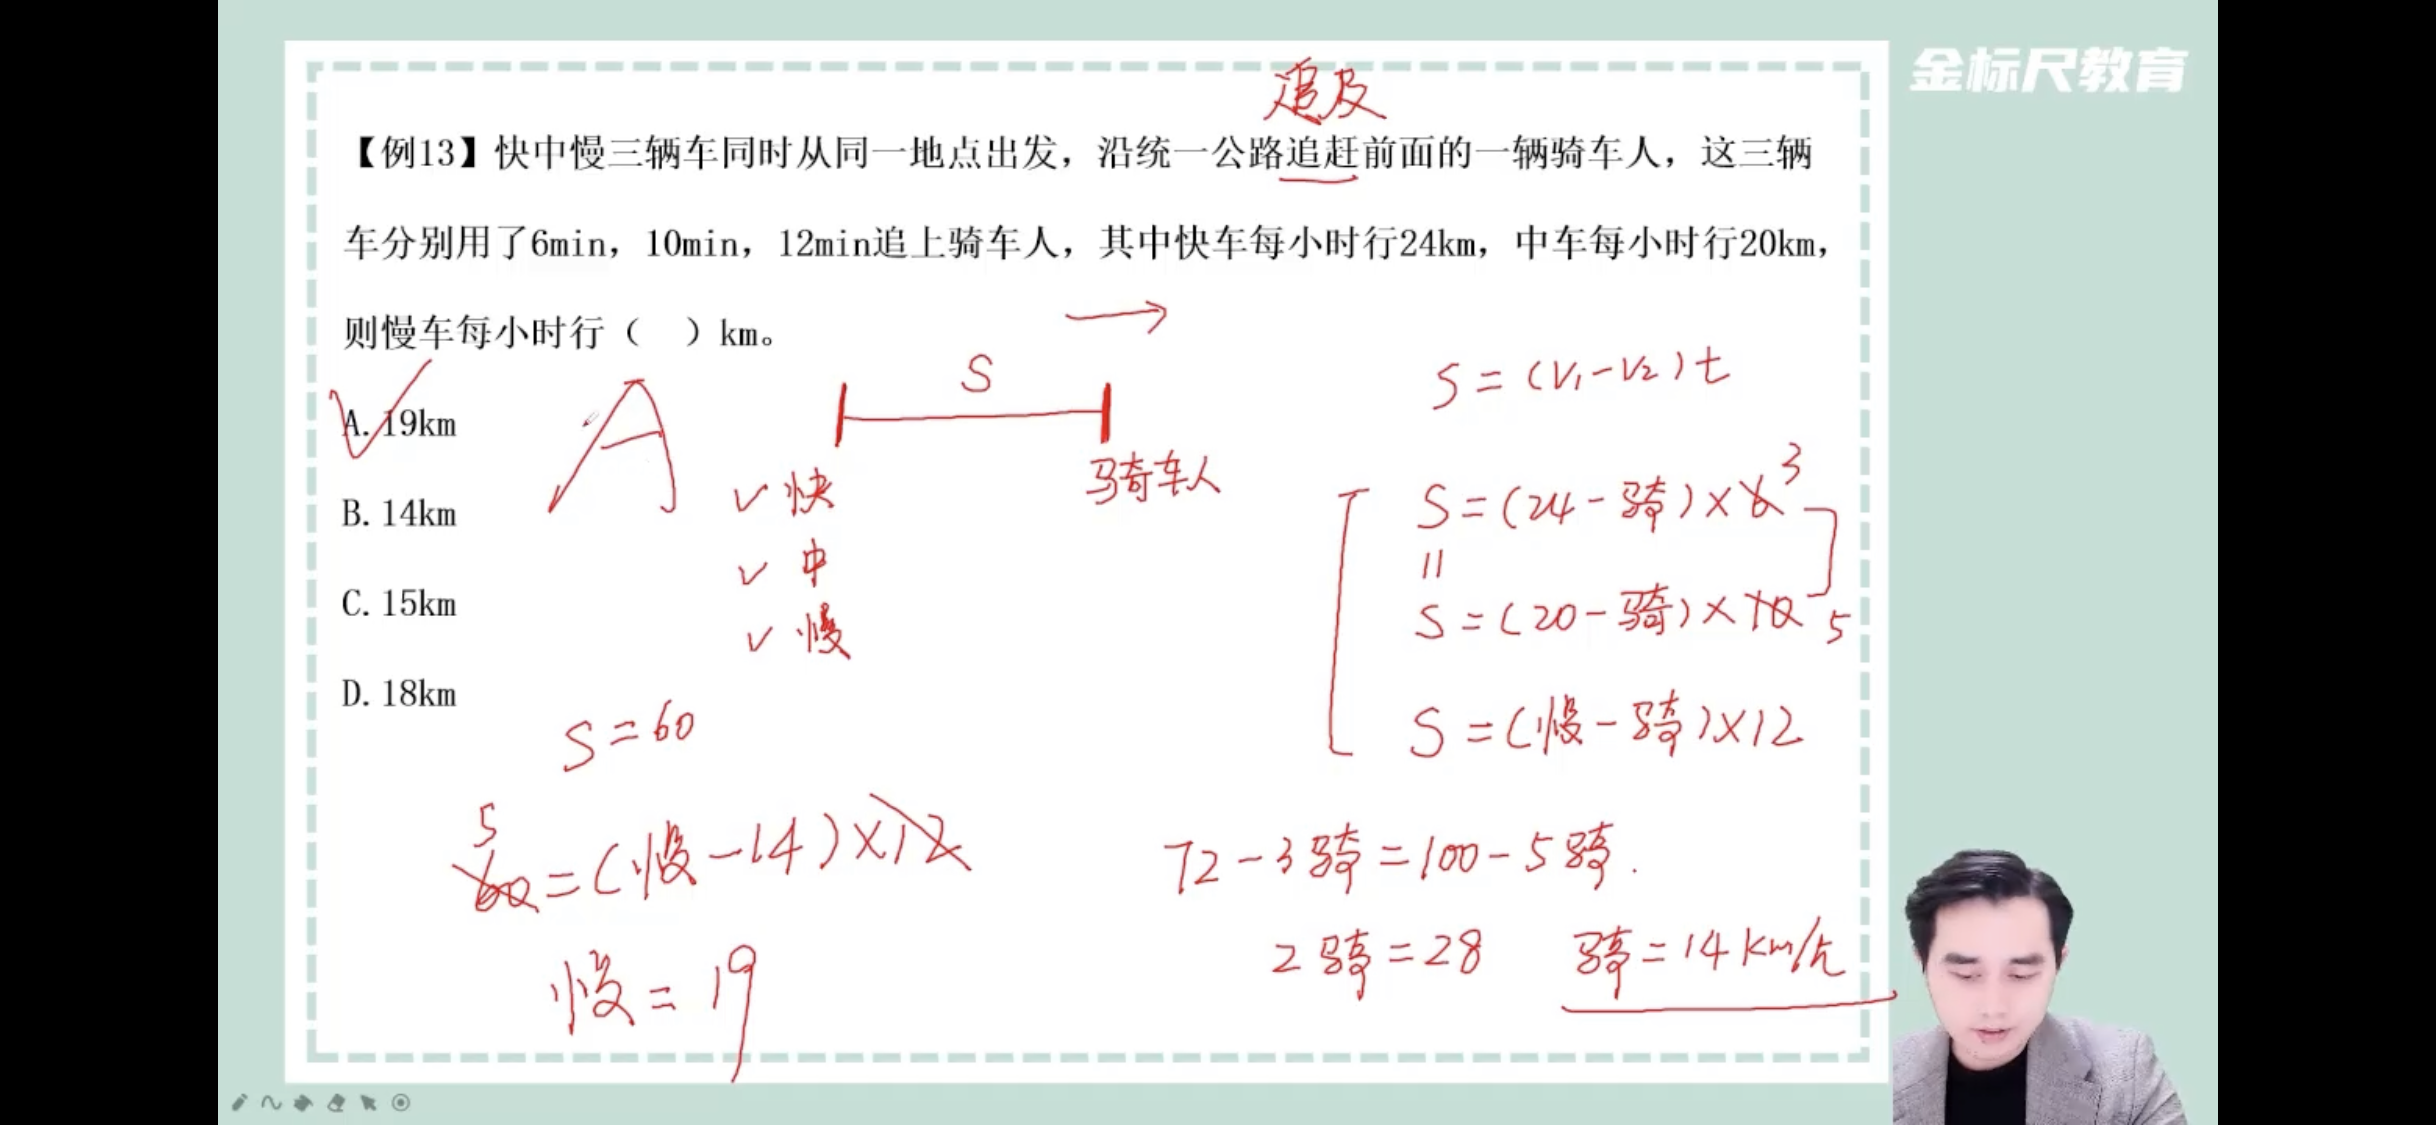 金标尺教育
追及
【例13】快中慢三辆车同时从同一地点出发，沿统一公路追赶前面的一辆骑车人，这三辆
车分别用了6min，10min，12min追上骑车人，其中快车每小时行24km，中车每小时行20km，
则慢车每小时行（　）km。
A.19km
B.14km
C.15km
D.18km
A
S
骑车人
快
中
慢
S=(V₁-V₂)t
S=(24-骑)×6 3
=
S=(20-骑)×10 5
S=(慢-骑)×12
S=60
5
60=(慢-14)×12
慢=19
72-3骑=100-5骑.
2骑=28 骑=14km/h